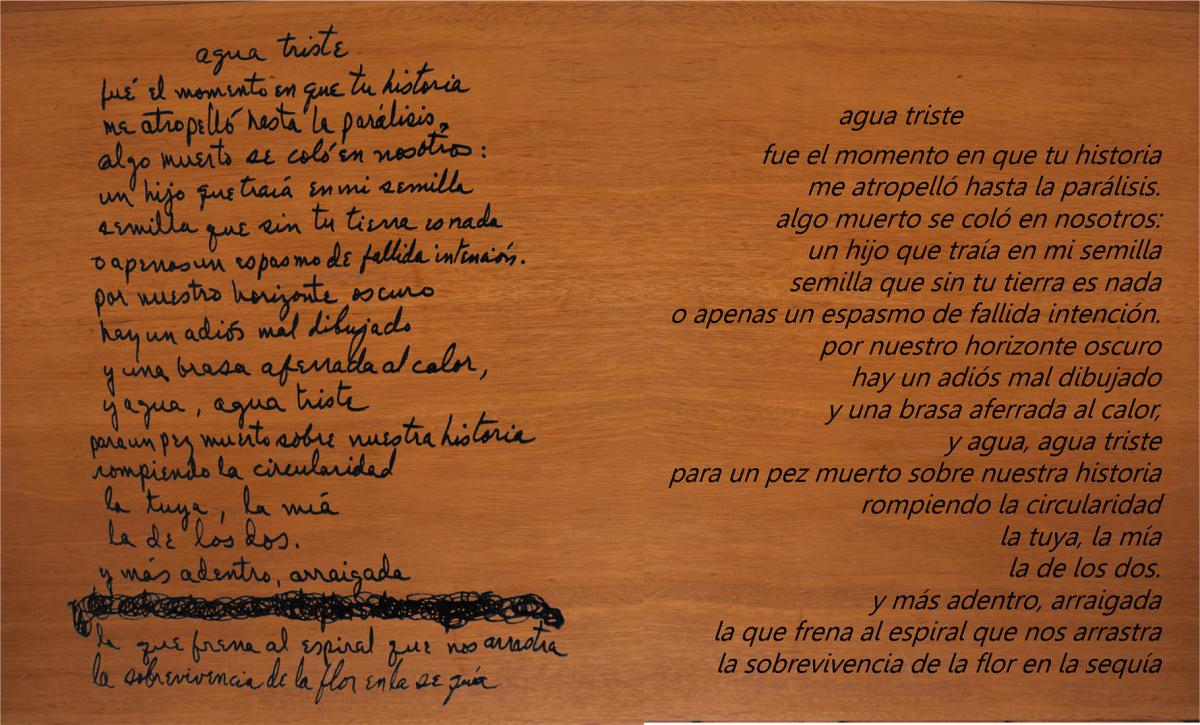 agua triste
fué el momento en que tu historia
me atropelló hasta la parálisis.
algo muerto se coló en nosotros:
un hijo que traiá en mi semilla
semilla que sin tu tierra es nada
o apenas un espasmo de fallida intención.
por nuestro horizonte oscuro
hay un adiós mal dibujado
y una brasa aferrada al calor,
y agua, agua triste
para un pez muerto sobre nuestra historia
rompiendo la circularidad
la tuya, la miá
la de los dos.
y más adentro, arraigada
la que frena al espiral que nos arrastra
la sobrevivencia de la flor en la sequia
agua triste
fue el momento en que tu historia
me atropelló hasta la parálisis.
algo muerto se coló en nosotros:
un hijo que traía en mi semilla
semilla que sin tu tierra es nada
o apenas un espasmo de fallida intención.
por nuestro horizonte oscuro
hay un adiós mal dibujado
y una brasa aferrada al calor,
y agua, agua triste
para un pez muerto sobre nuestra historia
rompiendo la circularidad
la tuya, la mía
la de los dos.
y más adentro, arraigada
la que frena al espiral que nos arrastra
la sobrevivencia de la flor en la sequía